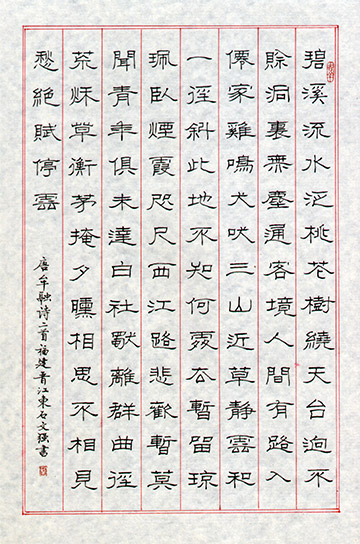 碧溪流水泛桃花樹繞天台迥不
賒洞裏無塵通客境人間有路入
僊家雞鳴犬吠三山近草靜雲和
一徑斜此地不知何處去暫留瓊
珮臥煙霞咫尺西江路悲歡暫莫
聞青年俱未達白社獨離群曲徑
荒秌草衡茅掩夕曛相思不相見
愁絕賦停雲
唐牟融詩二首福建晉江東石文強書